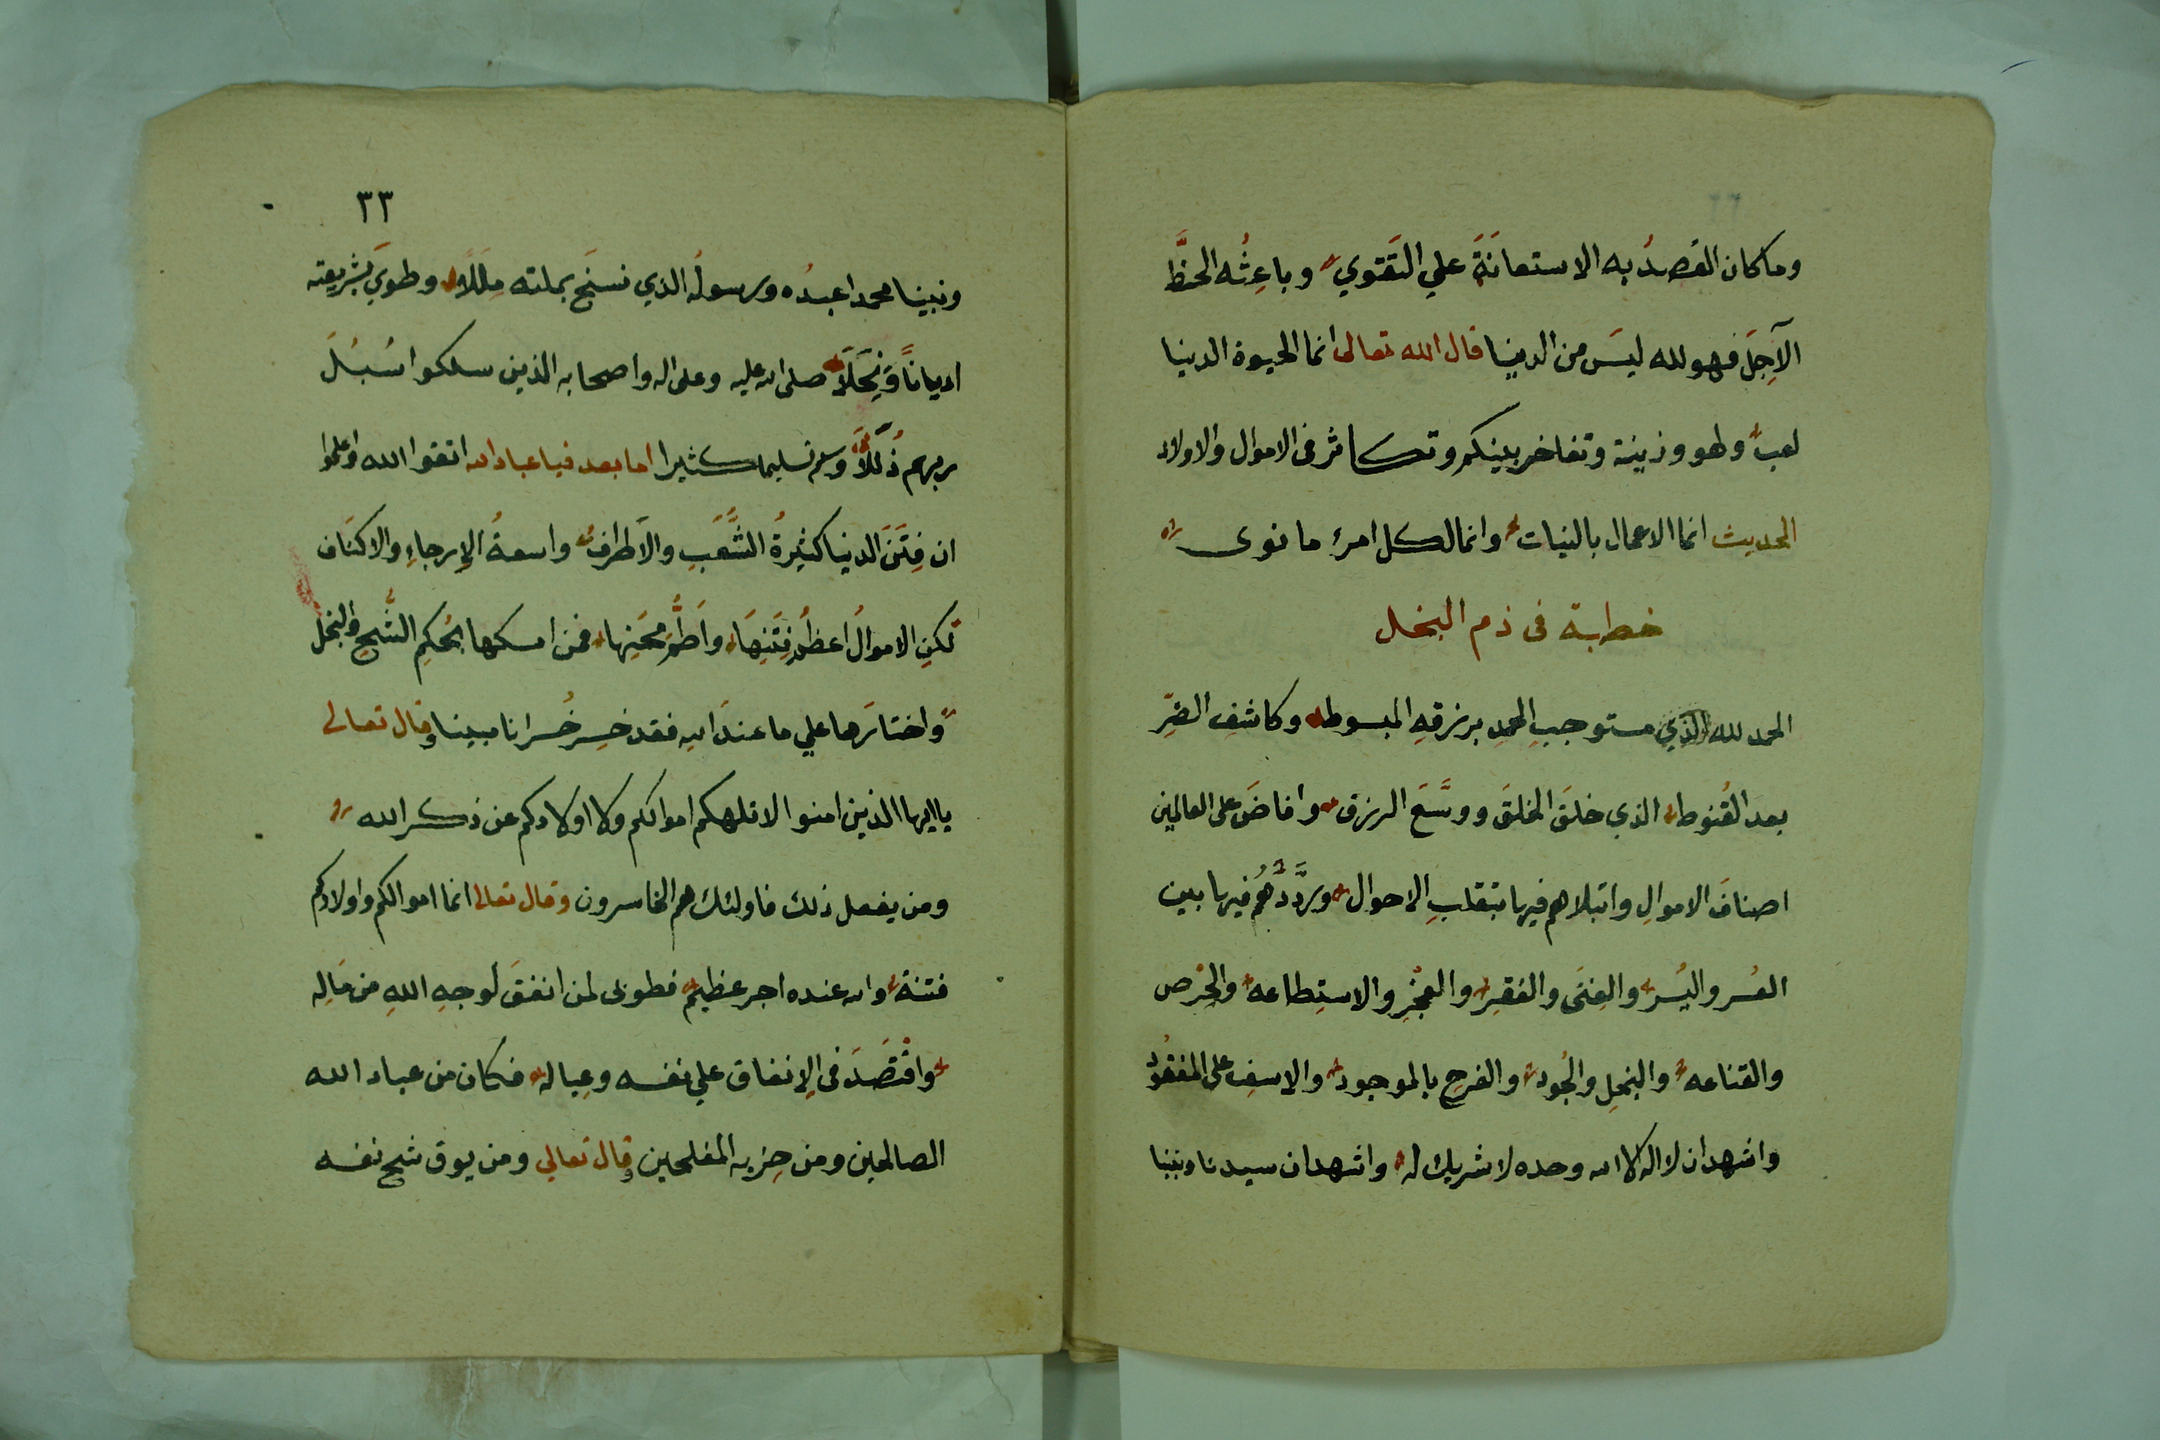 وما كان القصدُ به الاستعانَةَ علي التَقوي وباعِثُه الحظَّ
الآجِلَ فهو لله ليسَ من الدنيا قال الله تعالى انما الحيوة الدنيا
لعب ولهو وزينة وتفاخر بينكم وتكاثر فى الاموال والاولاد
الحديث انما الاعمال بالنيات وانما لكل امرئ ما نوى
خطبة فى ذم البخل
الحمد لله الذي مستوجبِ الحمدِ برزقهِ المبسوط وكاشف الضرِّ
بعدَ القُنوط الذي خلقَ الخلقَ ووسَّعَ الرزق وافاضَ على العالمين
اصنافَ الاموالِ وابتلاهم فيها بتقلبِ الاحوال وردَّدَهُم فيها بين
العُسر واليُسر والغِنَى والفقرِ والعجْزِ والاستِطاعه والحِرْص
والقناعه والبخلِ والجُود والفرحِ بالموجود والاسفِ على المفقُودِ
واشهد ان لا اله الا الله وحده لا شريك له واشهد ان سيدنا ونبينا
٣٣
ونبينا محمدا عبدُه ورسولُه الذي نسخَ بملته مِللاً وطويَ بشريعته
اديانًا وَنِحَلاً صلى الله عليه وعلى اله واصحابه الذين سلكوا سُبُلَ
ربهم ذُلُلاً وسلم تسليما كثيرا اما بعد فيا عباد الله اتقوا الله واعلموا
ان فِتَنَ الدنيا كثيرةُ الشُّعَبِ والاَطراف واسعةُ الإرجاءِ والاكنَاف
لكنِ الاموالُ اعظمُ فِتَنِهَا واَطَمُّ مِحَنِها فمن امسكها بحُكِمِ الشُّحِ والبخل
واختارَها علي ما عندَ الله فقد خسِر خُسرانا مبينا وقال تعالى
يا ايها الذين امنوا لا تلهكم اموالكم ولا اولادكم عن ذكر الله
ومن يفعل ذلك فاولئك هم الخاسرون وقال تعالى انما اموالكم واولادكم
فتنة والله عنده اجر عظيم فطوبى لمن انفقَ لوجهِ اللهِ من مَالِه
واقْتَصَدَ فى الإنفاق علي نفسه وعِياله فكان من عباد الله
الصالحين ومن حِزبه المفلحين وقال تعالي ومن يوق شح نفسه